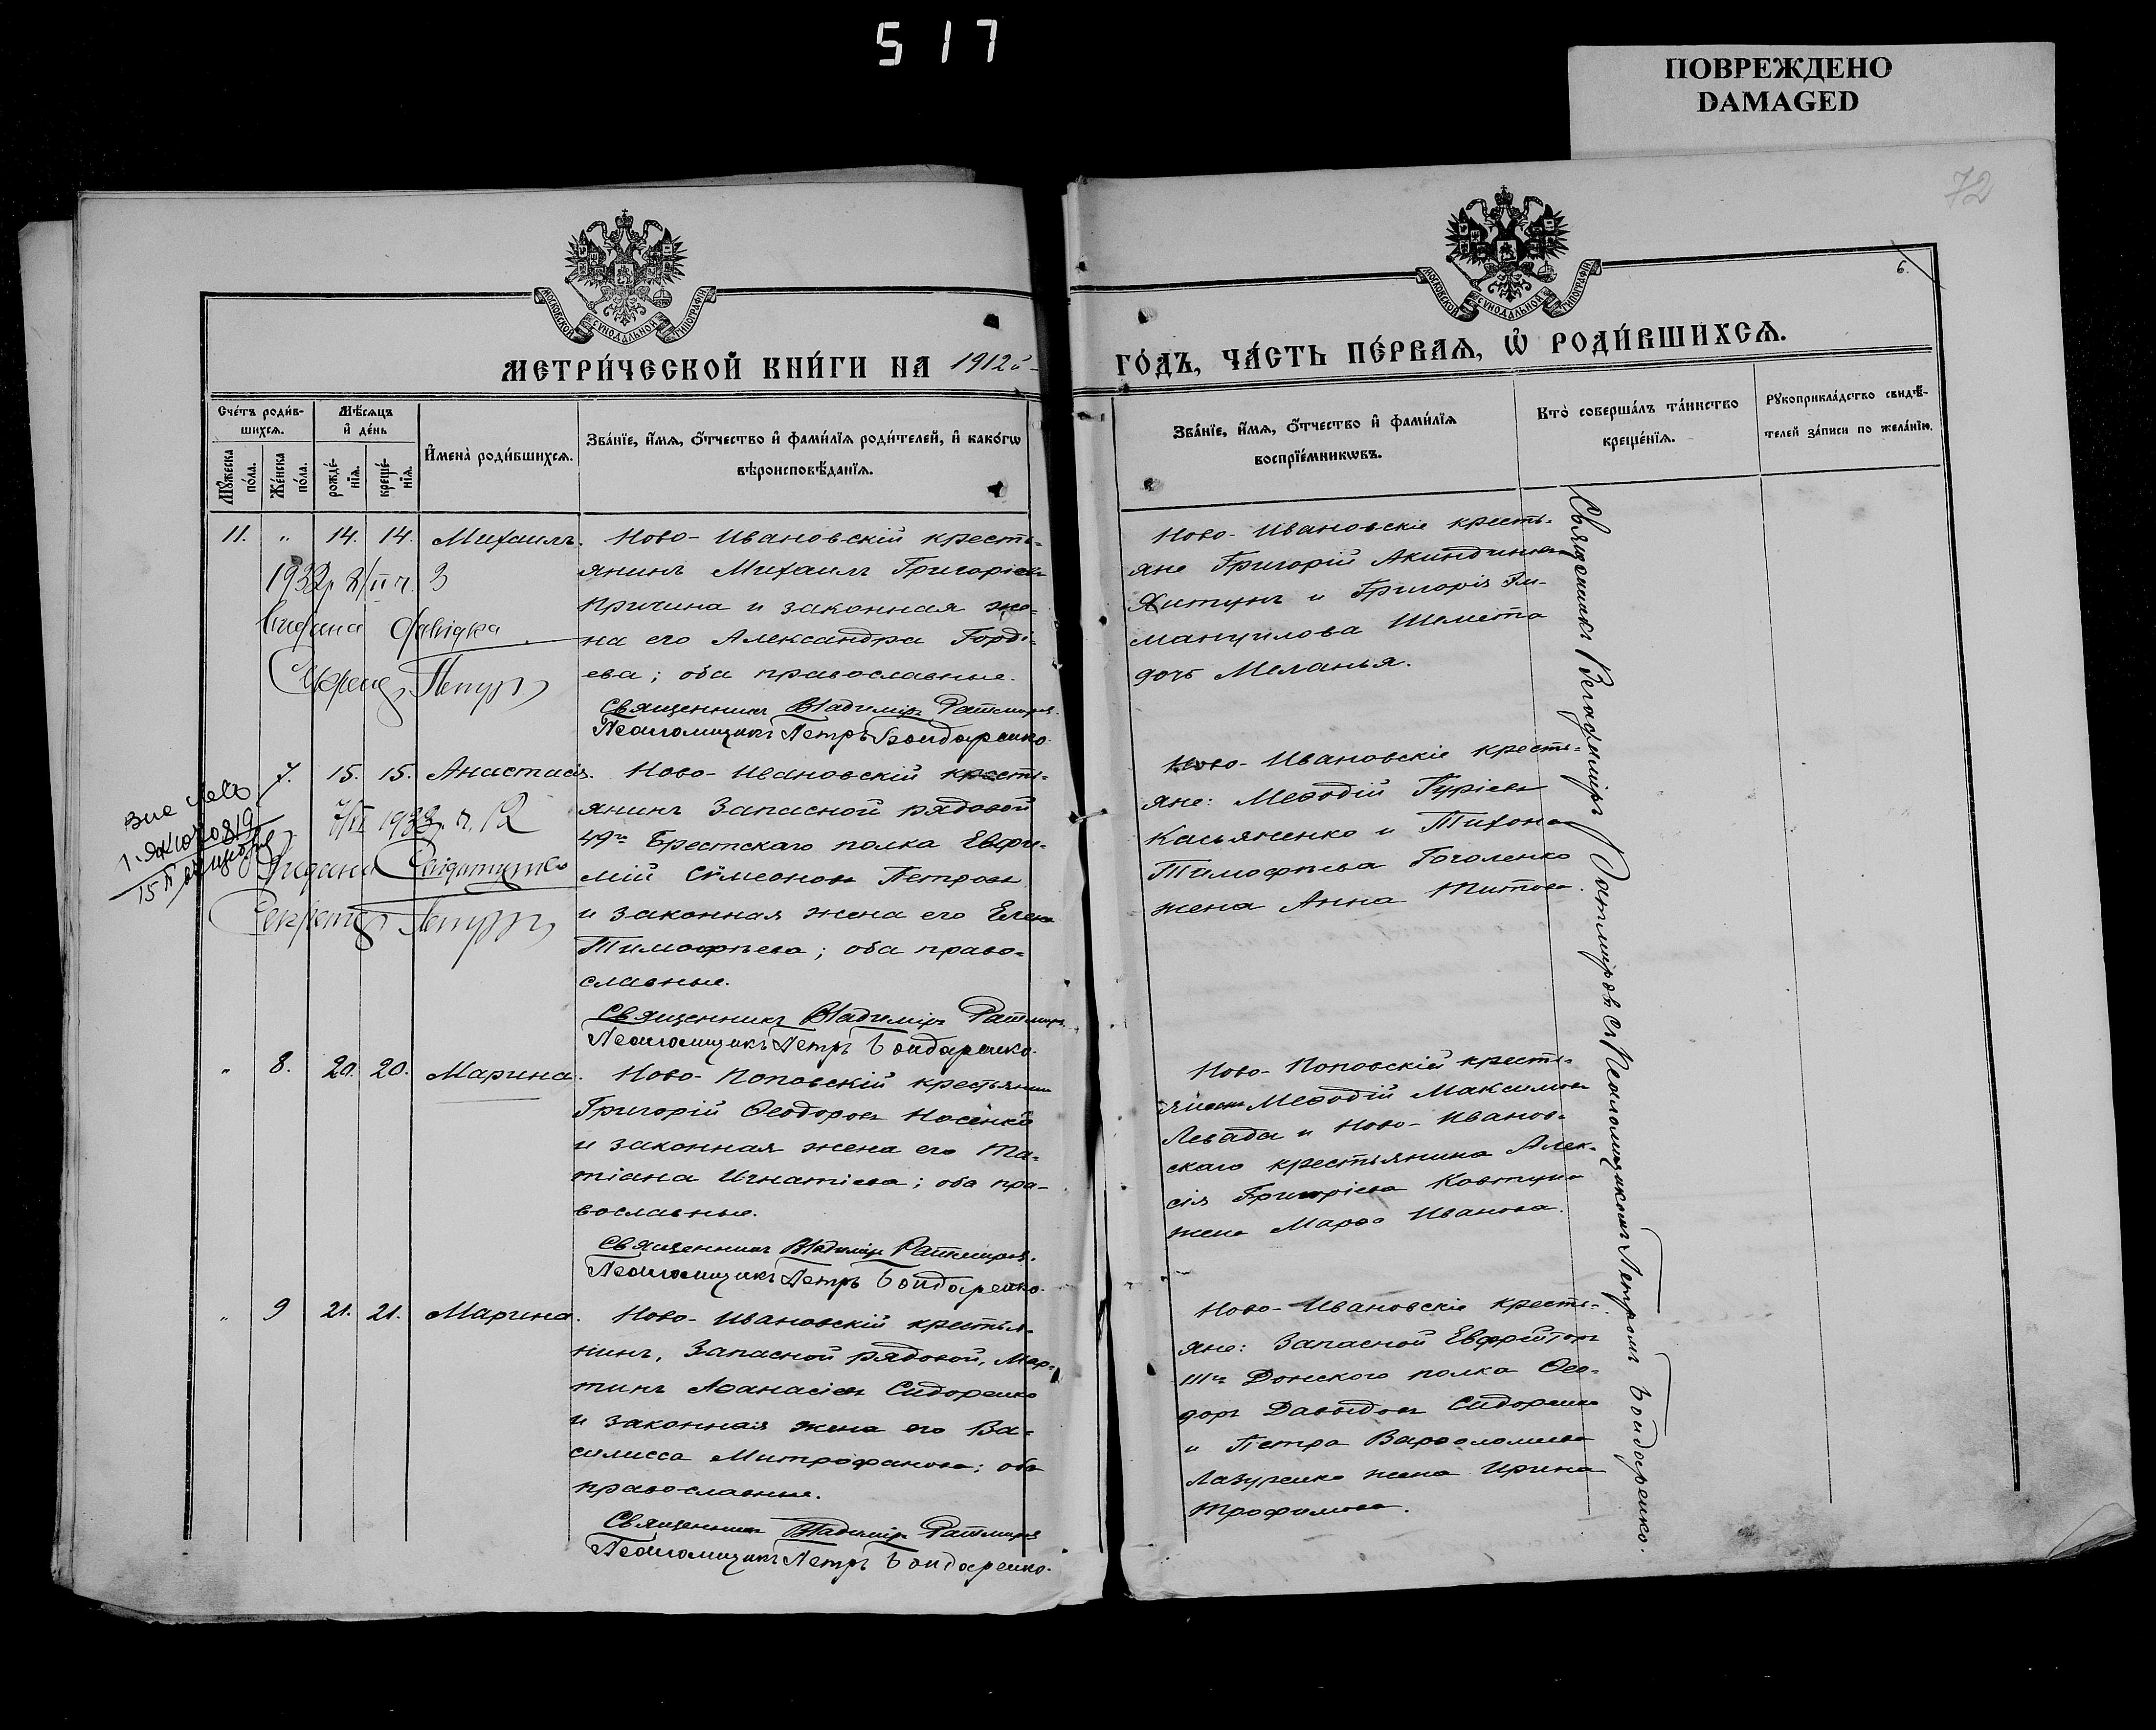 517
ПОВРЕЖДЕНО
DAMAGED
72
6.
МОСКОВСКОЙ СѴНОДАЛЬНОЙ ТИПОГРАФІИ
МОСКОВСКОЙ СѴНОДАЛЬНОЙ ТИПОГРАФІИ
МЕТРИ́ЧЕСКОЙ КНИ́ГИ НА 1912й
ГО́ДЪ, ЧА́СТЬ ПЕ́РВАѦ, Ѡ҆ РОДИ́ВШИХСѦ.
Сче́тъ роди́в-
шихсѧ.
Мꙋ́жеска по́ла.
Же́нска по́ла.
Мѣ́сѧцъ
и҆ де́нь
рожде́-
нїѧ.
креще́-
нїѧ.
И҆мена̀ роди́вшихсѧ.
Зва́нїе, и҆́мѧ, ѻ҆́тчество и҆ фами́лїѧ роди́телей, и҆ како́гѡ
вѣроисповѣ́данїѧ.
Зва́нїе, и҆́мѧ, ѻ҆́тчество и҆ фами́лїѧ
воспрїе́мникѡвъ.
Кто̀ соверша́лъ та́инство
креще́нїѧ.
Рꙋкоприкла́дство свидѣ́-
телей за́писи по жела́нїю.
11. " 14. 14. Михаилъ. Ново-Ивановскій кресть-
янинъ Михаилъ Григоріевъ
Причина и законная же-
на его Александра Горді-
ева; оба православные.
Священникъ Владиміръ Ратміровъ.
Псаломщикъ Петръ Бондаренко.
Ново-Ивановскіе кресть-
яне Григорій Акиндиновъ
Яитунъ и Григорія Эм-
мануилова Шемета
дочь Меланья.
1932р.
Видана довідка
Секретар
7. 15. 15. Анастасія. Ново-Ивановскій кресть-
янинъ Запасной рядовой
49го Брестскаго полка Евфи-
мій Сѵмеоновъ Петровъ
и законная жена его Елена
Тимофѣева; оба право-
славные.
Священникъ Владиміръ Ратміровъ
Псаломщикъ Петръ Бондаренко.
Ново-Ивановскіе кресть-
яне: Меѳодій Гуріевъ
Касьяненко и Тихона
Тимофѣева Гоголенко
жена Анна Титова.
Видано
Секретар
" 8. 20. 20. Марина. Ново-Поповскій крестьянинъ
Григорій Ѳеодоровъ Носенко
и законная жена его Та-
тіана Игнатіева; оба пра-
вославные.
Священникъ Владиміръ Ратміровъ.
Псаломщикъ Петръ Бондаренко.
Ново-Поповскій кресть-
янинъ Меѳодій Максимовъ
Левада и Ново-Иванов-
скаго крестьянина Алек-
сія Григоріева Ковтуна
жена Марѳа Иванова.
" 9 21. 21. Марина. Ново-Ивановскій крестья-
нинъ, Запасной рядовой, Мар-
тинъ Аѳанасіевъ Сидоренко
и законная жена его Ва-
силисса Митрофанова; оба
православные.
Священникъ Владиміръ Ратміровъ
Псаломщикъ Петръ Бондаренко.
Ново-Ивановскіе кресть-
яне: Запасной Ефрейторъ
Донского полка Ѳео-
доръ Давыдовъ Сидоренко
и Петра Варѳоломеева
Лазуренко жена Ирина
Трофимова.
Священникъ Владиміръ Ратміровъ съ Псаломщикомъ Петромъ Бондаренко.